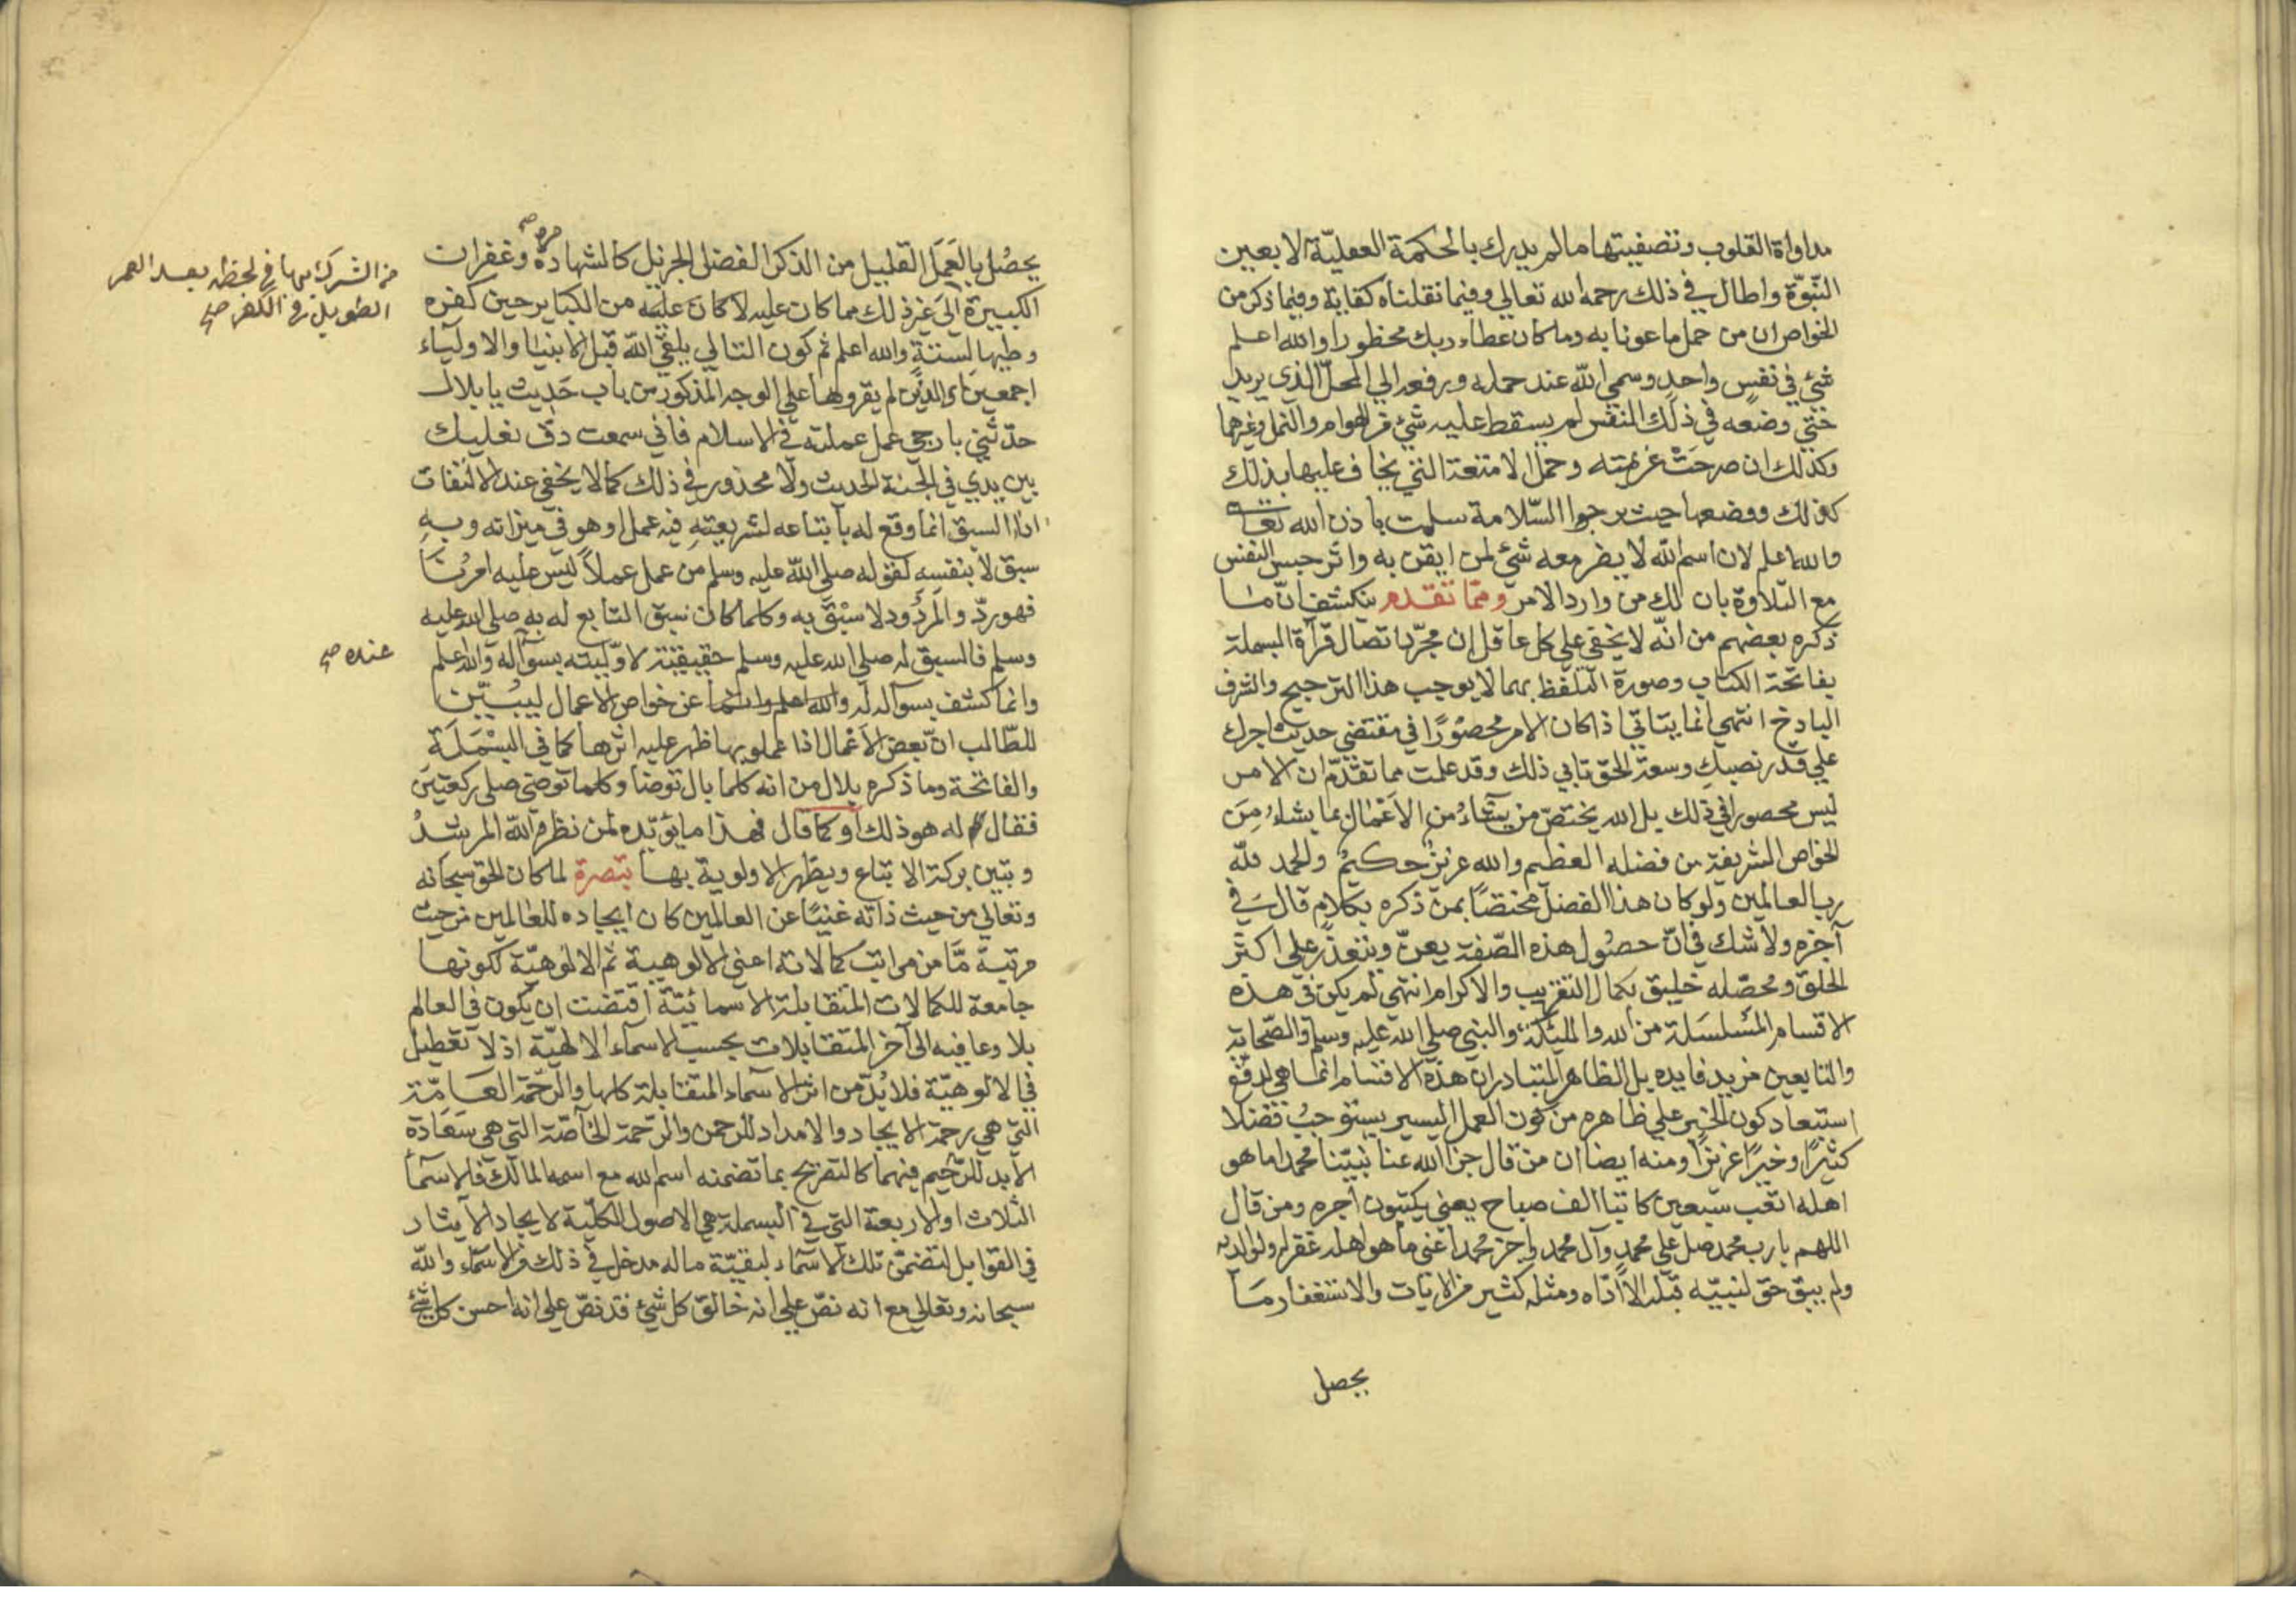 مداواة القلوب وتصفيتها ما لم يدرك بالحكمة العقليّة الا بعين
النّبوّة واطال في ذلك رحمه الله تعالي وفيما نقلناه كفاية وفيما ذكر من
الخواص ان من حمل ماعونا به وما كان عطاء ربك محظورا والله اعلم
شئ في نفس واحد وسمي الله عند حمله ورفعه الي المحلّ الذي يريد
حتي وضعه في ذلك النفس لم يسقط عليه شئ من الهوام والنمل وغيرهما
وكذلك ان صرحت عزيمته وحمل الامتعة التي يخاف عليها بذلك
كذلك ووضعها حيث يرجوا السّلامة سلمت باذن الله تعالي
والله اعلم لان اسم الله لا يضر معه شئ لمن ايقن به واثر حبس النفس
مع التلاوة بان لك من وارد الامر ومما تقدم ينكشف انّ ما
ذكره بعضهم من انّه لا يخفي علي كل عاقل ان مجرّد اتصال قرآة البسملة
بفاتحة الكتاب وصورة التلفّظ بهما لا يوجب هذا الترجيح والشرف
الباذخ انتهي انما يتاتي اذا كان الامر محصورًا في مقتضي حديث اجرك
علي قدر نصبك وسعة الحق تابي ذلك وقد علمت مما تقدّم ان الامر
ليس محصورا في ذلك بل الله يختصّ من يشاءُ من الاَعْمال بما يشاءُ مِنَ
الخواص الشريفة من فضله العظيم والله عزيز حكيم والحمد لله
رب العالمين ولو كان هذا الفضل مختصًا بمن ذكره بكلام قال في
آخره ولا شك في انّ حصُول هذه الصّفة يعزّ ويتعذّر علي اكثر
الخلق ومحصّله خليق بكمال التقريب والاكرام انتهي لم يكن في هذه
الاقسام المسلسَلة من الله والمليكة والنبي صلي الله عليه وسلم والصّحابة
والتابعين مزيد فايده بل الظاهر المتبادر ان هذه الاقسام انما هي لدفع
استبعاد كون الخبر علي ظاهره من كون العمل اليسير يستوجبُ فضلا
كثيرًا وخيرًا غزيرًا ومنه ايضا ان من قال جزا الله عنا نبيّنا محمدا ما هو
اهله اتعب سبعين كاتبا الف صباح يعني يكتبون اجره ومن قال
اللهم يا رب محمد صل علي محمد وآل محمد واجز محمدا عني ما هو اهله غفر له ولوالديه
ولم يبق حق لنبيّه قبله الا ادّاه ومثله كثير من الايات والاستغفار مما
يحصل
يحصُل بالعَمَل القليل من الذكر الفضل الجزيل كالشهادة مرة وغفران
الكبيرة الي غير ذلك مما كان عليه لا كان عليه من الكباير حين كفره
وطيها لسنة والله اعلم ثم كون التالي يلقي اللّه قبل الانبيا والاولياء
اجمعين الذين لم يقروها علي الوجه المذكور من باب حَديث يا بلال
حدّثني بارجي عمل عملته في الاسلام فاني سمعت دقّ نعليك
بين يدي في الجنة الحديث ولا محذور في ذلك كما لا يخفي عند الالتفات
اذا السبق انما وقع له باتباعه لشريعته فيه عمل او هو في ميزانه وبهِ
سبق لا بنفسه لقوله صلي الله عليه وسلم من عمل عملاً ليس عليه امرُنا
فهو ردّ والمردُود لا سبْق به وكلما كان سبق التابع له به صلي الله عليه
وسلم فالسبق له صلي الله عليه وسلم حقيقيّة لاوّليته بسوآله والله اعلم
وانما كشف بسوآله له والله اعلم وانما عن خواص الاعمال ليبُيّن
للطّالب انّ بعض الاَعْمال اذا عملو بها ظهر عليه اثرها كما في البسْمَلَةِ
والفاتحة وما ذكره بلال من انه كلما بال توضا وكلما توضي صلي ركعتين
فقال له هو ذلك او كما قال فهذا ما يؤيّده لمن نظره اللّه المرشدُ
وتبين بركة الاتباع ويظهر الاولوية بها تبصرة لما كان الحق سبحانه
وتعالي من حيث ذاته غنيًا عن العالمين كان ايجاده للعالمين من حيث
مرتبة مّا من مراتب كمالاته اعني الالوهية ثم الالوهيّة لكونها
جامعة للكمالات المتقابلة الاسمائيّة اقتضت ان يكون في العالم
بلا وعافيه الي آخر المتقابلات بحسب الاسماء الالهيّة اذ لا تعطيل
في الالوهيّة فلا بُدّ من اثر الاسماء المتقابلة كلها والرّحمة العَامّة
التي هي رحمة الايجاد والامداد للرحمن والرّحمة الخاصّة التي هي سَعَادة
الابد للرّحيم فيهما كالتصريح بما تضمنه اسم الله مع اسمه المالك فالاسما
الثلاث او الاربعة التي في البسملة هي الاصول الكليّة لايجاد الآيثار
في القوابل لتضمّن تلك الاسماء لبقيّة ماله مدخل في ذلك من الاسمآء واللّه
سبحانه وتعالي مع انه نصّ علي انه خالق كل شئ قد نصّ علي انه احسن كل شئ
من الشرك بها في لحظه بعد العمر
الطويل في الكفر صح
عنده صح